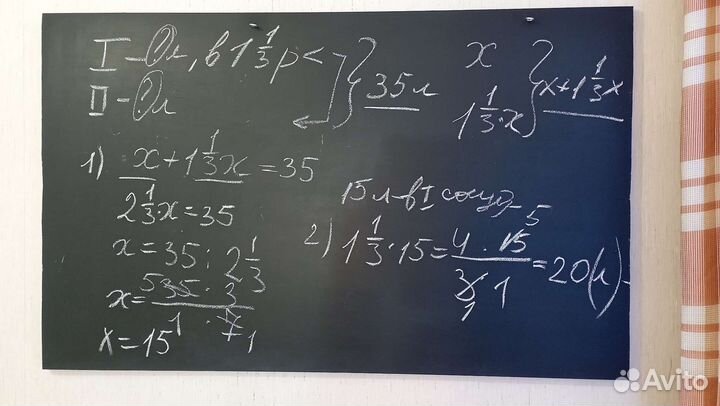 I – Ол, в 1 1/3 р < } 35 л
II – Ол
x } x + 1 1/3 x
1 1/3 · x
1) x + 1 1/3 x = 35
2 1/3 · x = 35
x = 35 : 2 1/3
x = 35 · 3 / 1 · 7
5 1 1
x = 15
15 л – в I сосуд
2) 1 1/3 · 15 = 4 · 15 / 3 · 1 = 20 (л) –
5 1
Avito